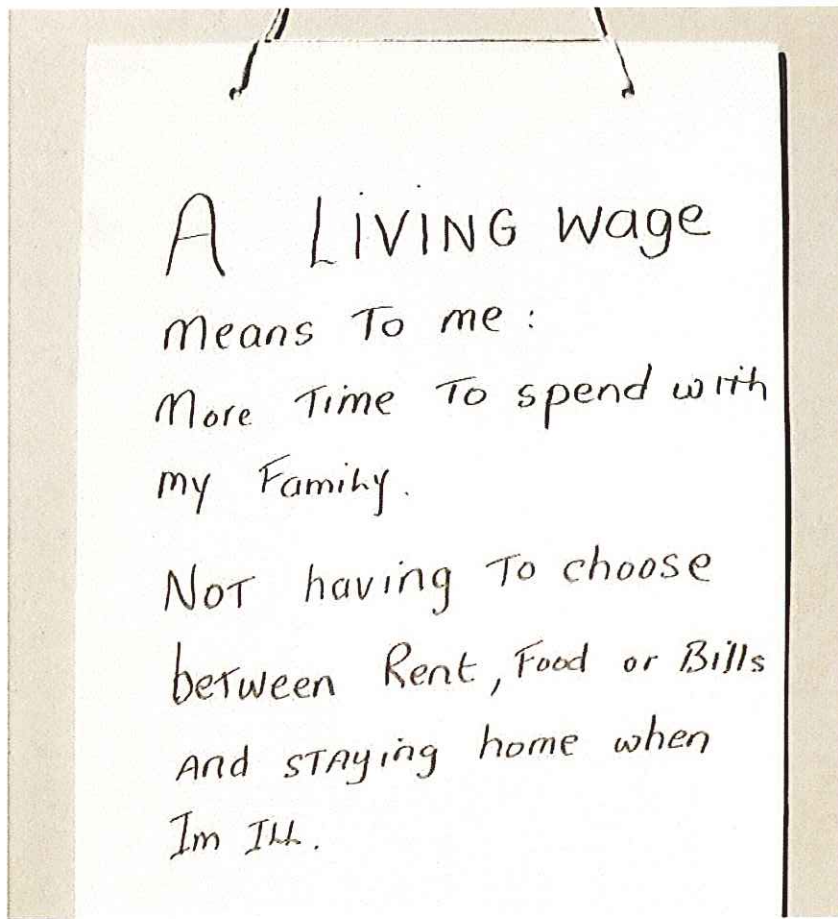 A LiVING wage
means To me :
More Time To spend with
my Family.
NoT having To choose
beTween Rent, Food or Bills
And STAying home when
Im Ill.